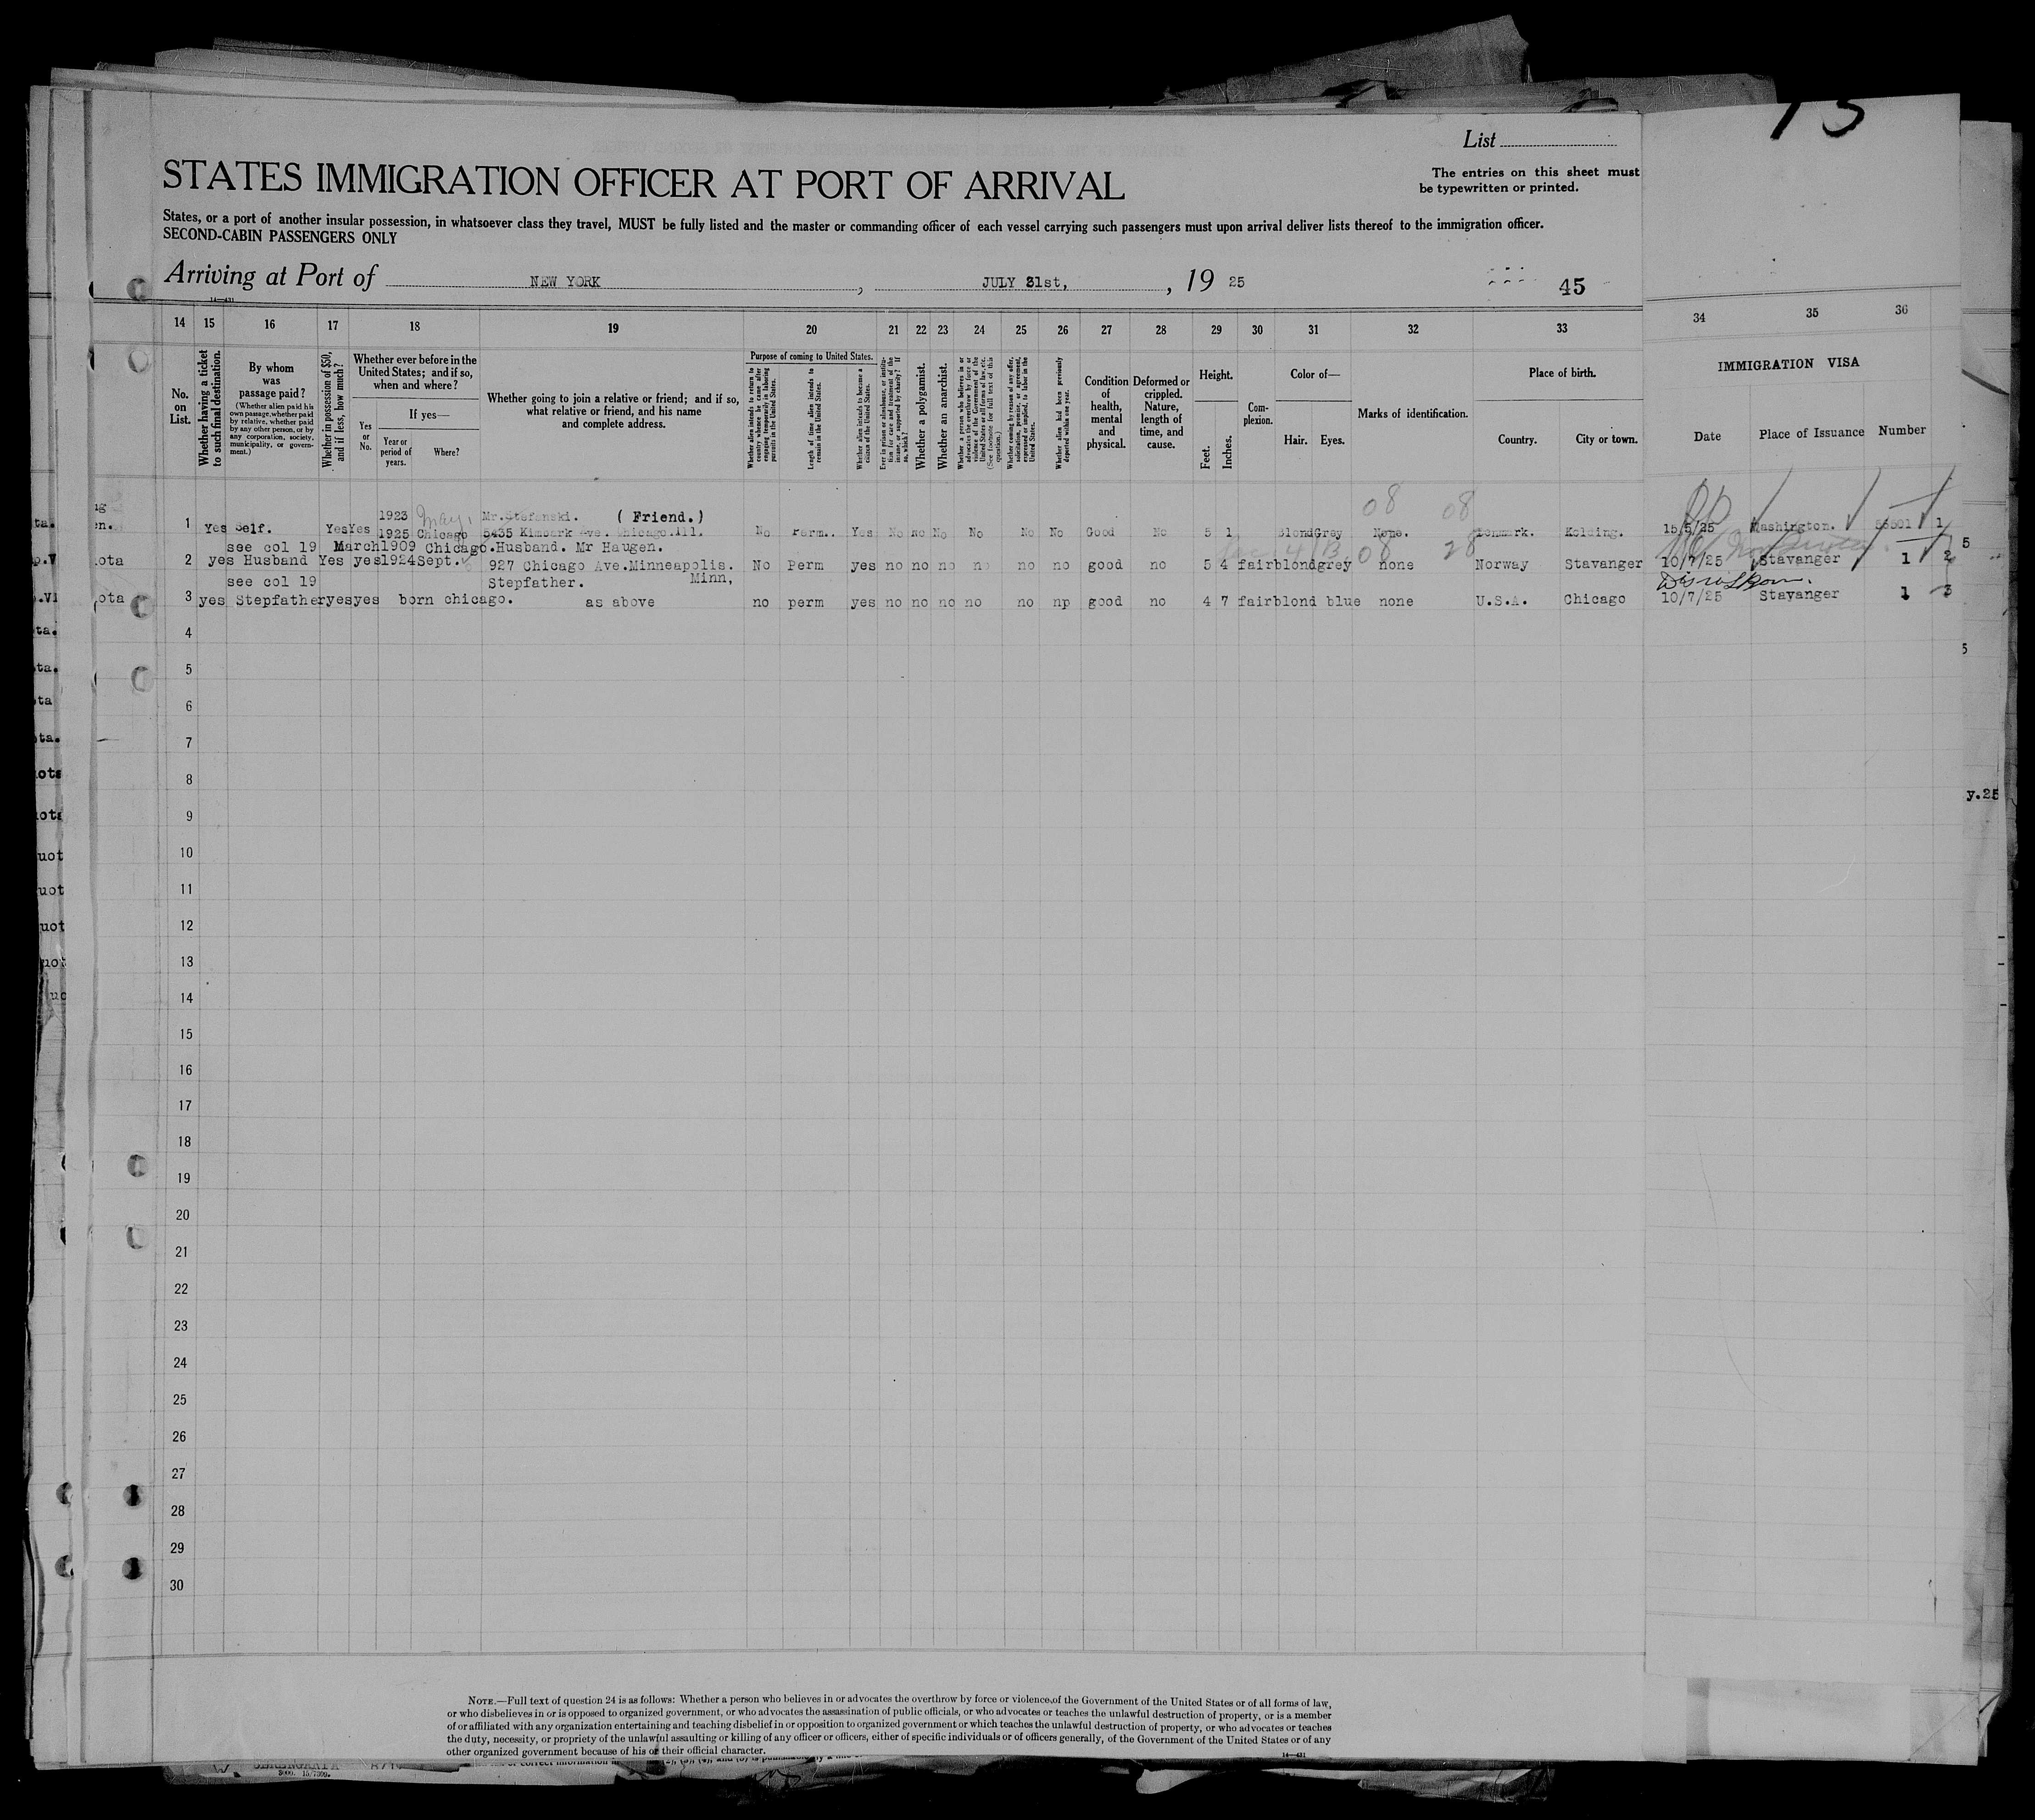 List
STATES IMMIGRATION OFFICER AT PORT OF ARRIVAL
The entries on this sheet must
be typewritten or printed.
States, or a port of another insular possession, in whatsoever class they travel, MUST be fully listed and the master or commanding officer of each vessel carrying such passengers must upon arrival deliver lists thereof to the immigration officer.
SECOND-CABIN PASSENGERS ONLY
Arriving at Port of NEW YORK, JULY 31st, , 19 25
45
14—431
14 15 16 17 18 19 20 21 22 23 24 25 26 27 28 29 30 31 32 33 34 35 36
No. on List.
Whether having a ticket to such final destination.
By whom was passage paid?
(Whether alien paid his own passage, whether paid by relative, whether paid by any other person, or by any corporation, society, municipality, or government.)
Whether in possession of $50, and if less, how much?
Whether ever before in the United States; and if so, when and where?
Yes or No.
If yes—
Year or period of years.
Where?
Whether going to join a relative or friend; and if so, what relative or friend, and his name and complete address.
Purpose of coming to United States.
Whether alien intends to return to country whence he came after engaging temporarily in laboring pursuits in the United States.
Length of time alien intends to remain in the United States.
Whether alien intends to become a citizen of the United States.
Ever in prison or almshouse or institution for care and treatment of the insane, or supported by charity? If so, which?
Whether a polygamist.
Whether an anarchist.
Whether a person who believes in or advocates the overthrow by force or violence of the Government of the United States or all forms of law, etc. (See footnote for full text of this question.)
Whether coming by reason of any offer, solicitation, promise, or agreement, expressed or implied, to labor in the United States.
Whether alien had been previously deported within one year.
Condition of health, mental and physical.
Deformed or crippled. Nature, length of time, and cause.
Height.
Feet. Inches.
Complexion.
Color of—
Hair. Eyes.
Marks of identification.
Place of birth.
Country. City or town.
IMMIGRATION VISA
Date Place of Issuance Number
08 08
1923 May, Mr.Stefanski. (Friend.)
1 Yes Self. Yes Yes 1925 Chicago 5435 Kimbark Ave. Chicago.Ill. No Perm.. Yes No no No No No No Good No 5 1 Blond Grey None. Denmark. Kolding. 15/5/25 Washington. 1
see col 19 March1909 Chicago.Husband. Mr Haugen. 08 28
2 yes Husband Yes yes1924Sept. 927 Chicago Ave.Minneapolis. No Perm yes no no no no no no good no 5 4 fair blond grey none Norway Stavanger 10/7/25 Stavanger 1 2
see col 19 Stepfather. Minn,
3 yes Stepfather yes yes born chicago. as above no perm yes no no no no no np good no 4 7 fair blond blue none U.S.A. Chicago 10/7/25 Stavanger 1 3
4
5
6
7
8
9
10
11
12
13
14
15
16
17
18
19
20
21
22
23
24
25
26
27
28
29
30
y.25
NOTE.—Full text of question 24 is as follows: Whether a person who believes in or advocates the overthrow by force or violence of the Government of the United States or of all forms of law,
or who disbelieves in or is opposed to organized government, or who advocates the assassination of public officials, or who advocates or teaches the unlawful destruction of property, or is a member
of or affiliated with any organization entertaining and teaching disbelief in or opposition to organized government or which teaches the unlawful destruction of property, or who advocates or teaches
the duty, necessity, or propriety of the unlawful assaulting or killing of any officer or officers, either of specific individuals or of officers generally, of the Government of the United States or of any
other organized government because of his or their official character.
14—431